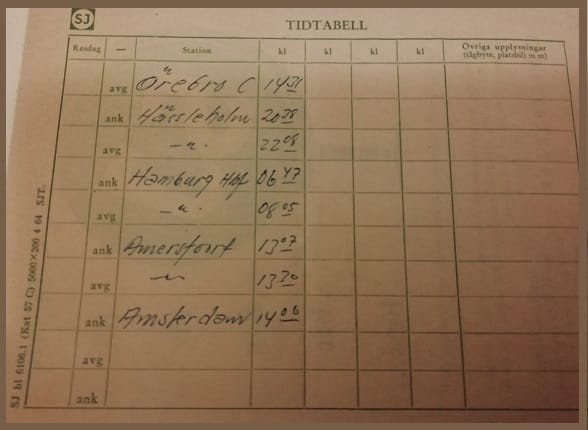 SJ
TIDTABELL
Resdag — Station kl kl kl kl Övriga upplysningar
(tågbyte, platsbilj m m)
avg Örebro C 14 31
ank Hässleholm 20 38
avg — " — 22 08
ank Hamburg Hbf 06 47
avg — " — 08 05
ank Amersfoort 13 07
avg — " — 13 20
ank Amsterdam 14 06
avg
ank
SJ bl 6106.1 (Kat 57 C) 5000×200 4 64 SJT.